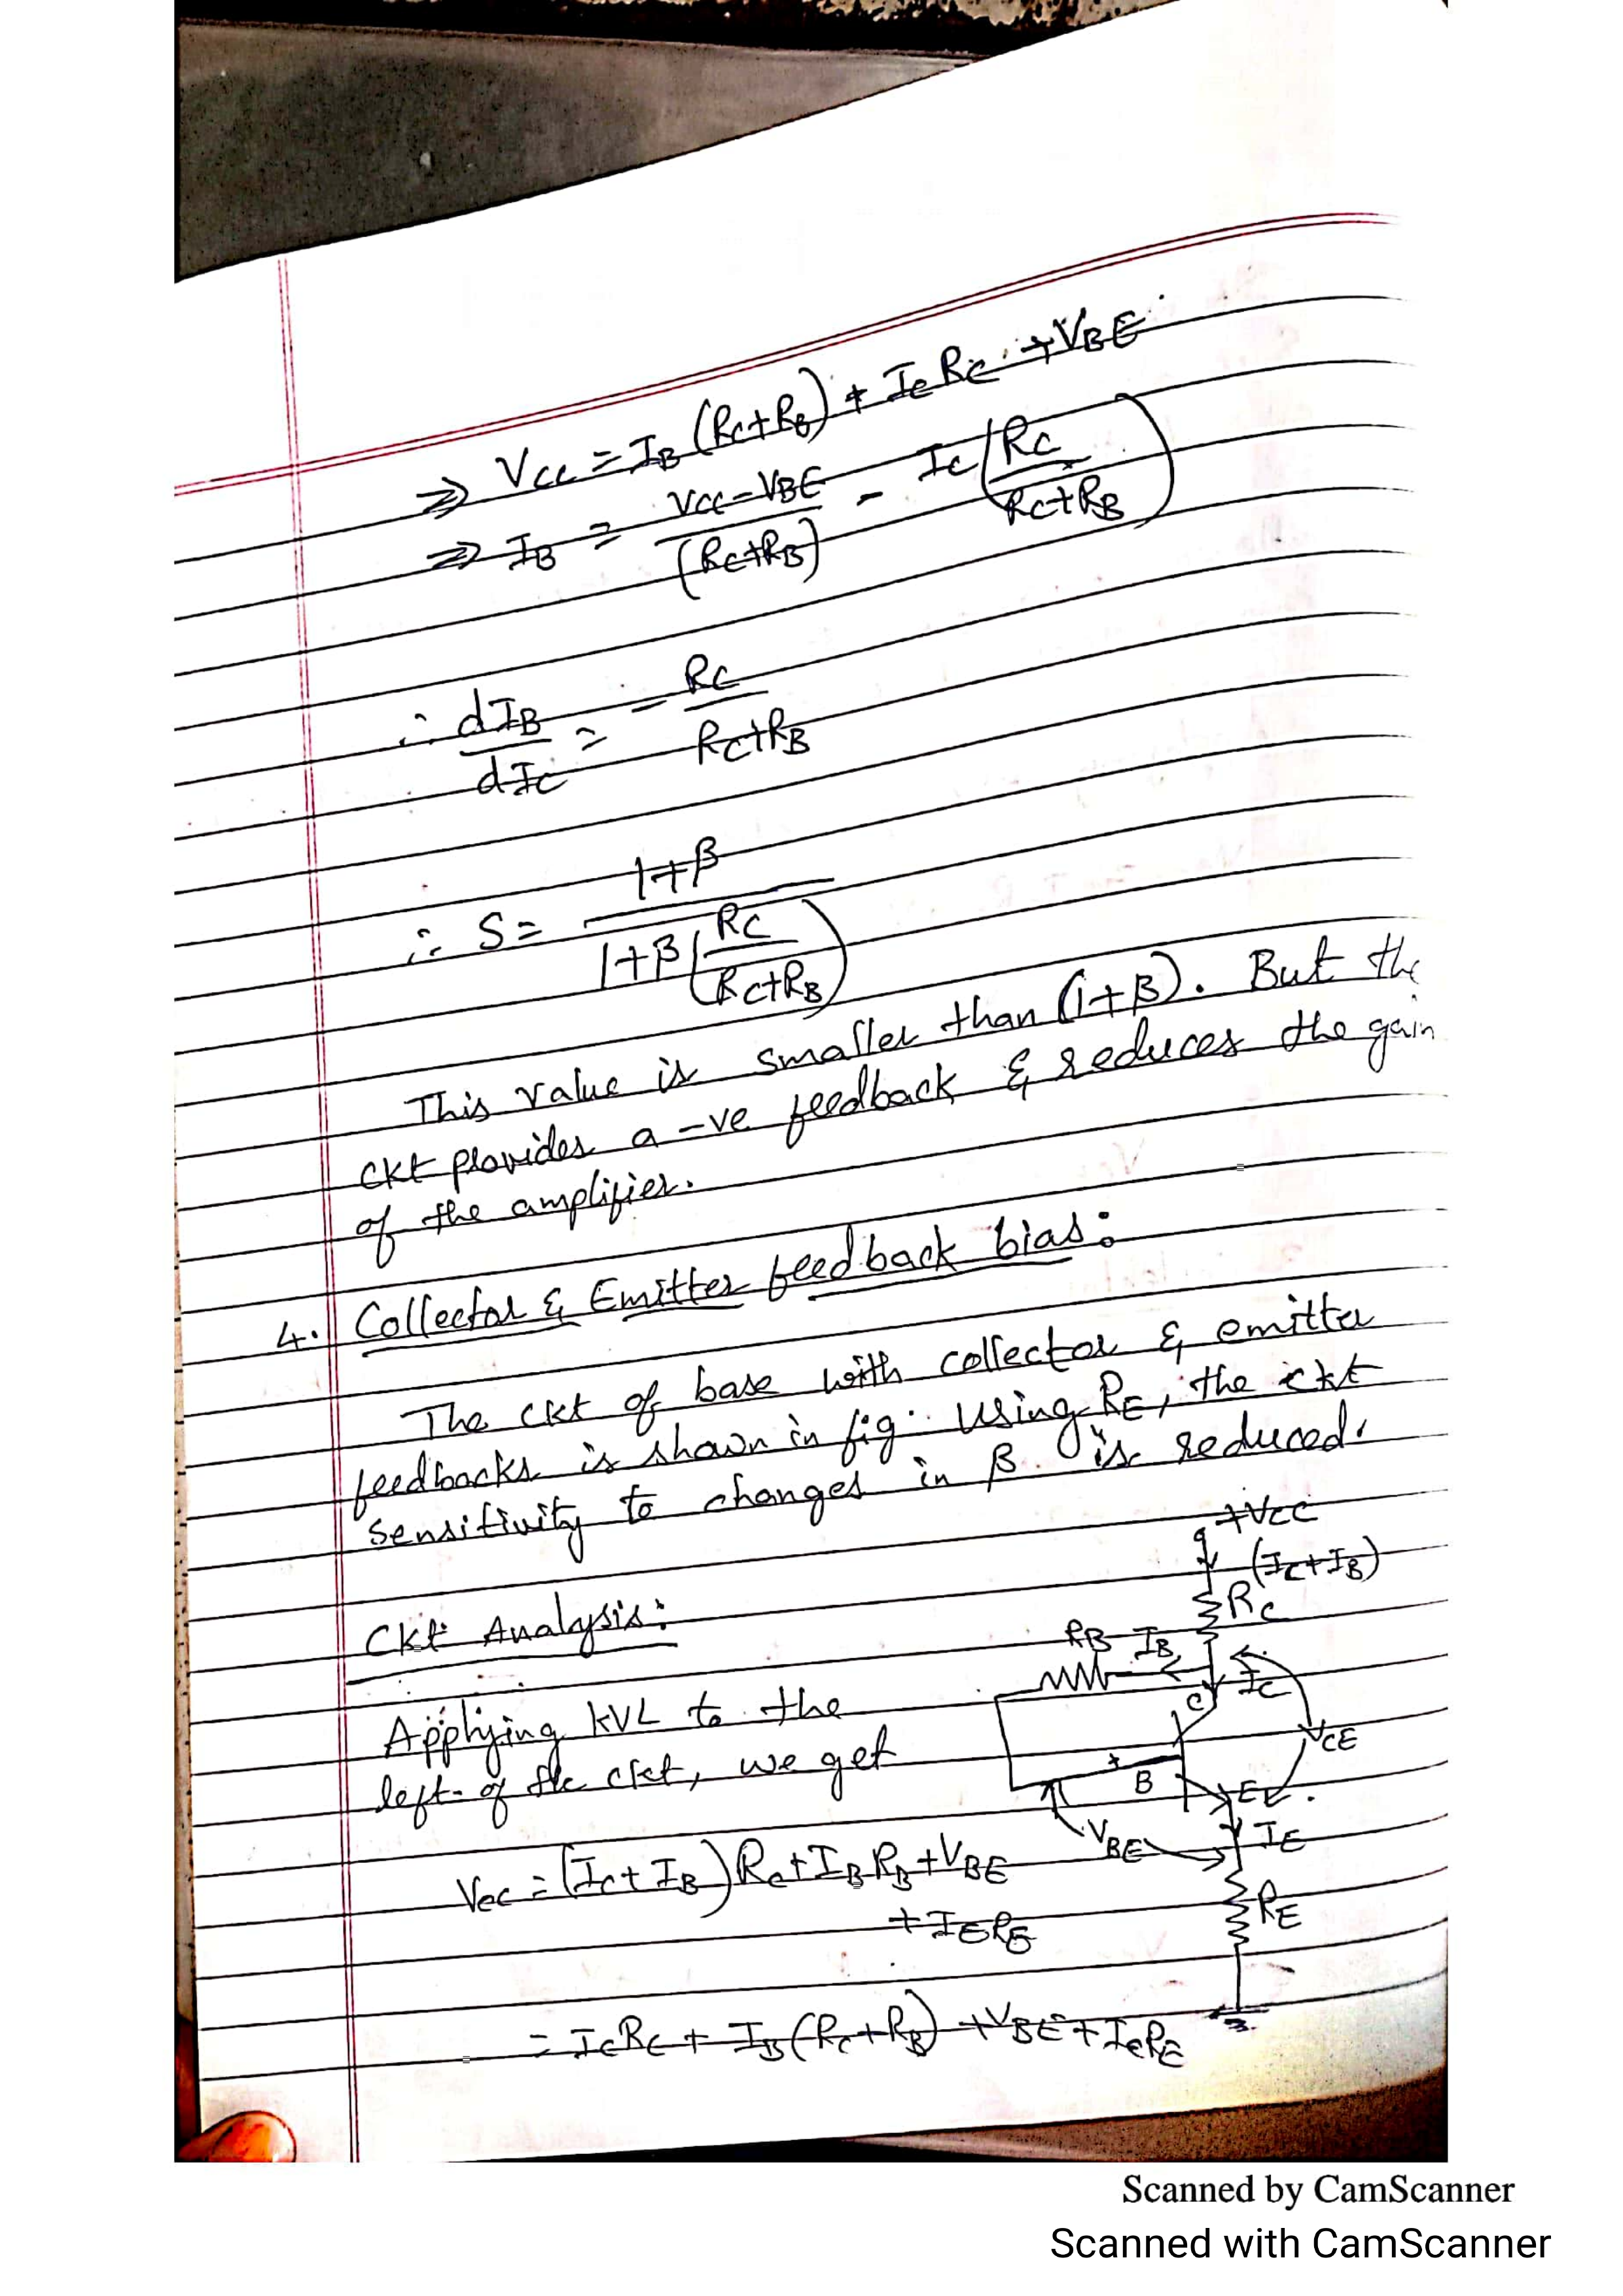 ⇒ VCC = IB (RC+RB) + IC RC + VBE
⇒ IB = VCC-VBE / (RC+RB) - IC (RC / RC+RB)
∴ dIB / dIC = - RC / RC+RB
∴ S = 1+β / 1+β (RC / RC+RB)
This value is smaller than (1+β). But the
ckt provides a -ve feedback & reduces the gain
of the amplifier.
4. Collector & Emitter feedback bias:
The ckt of base with collector & emitter
feedbacks is shown in fig. Using RE, the ckt
sensitivity to changes in β is reduced.
+VCC
(IC+IB)
RC
Ckt Analysis:
RB IB
IC
C
Applying KVL to the
VCE
left of the ckt, we get
B
E
VBE
IE
VCC = (IC+IB) RC + IB RB + VBE
+ IE RE
RE
= IC RC + IB (RC+RB) + VBE + IE RE
Scanned by CamScanner
Scanned with CamScanner